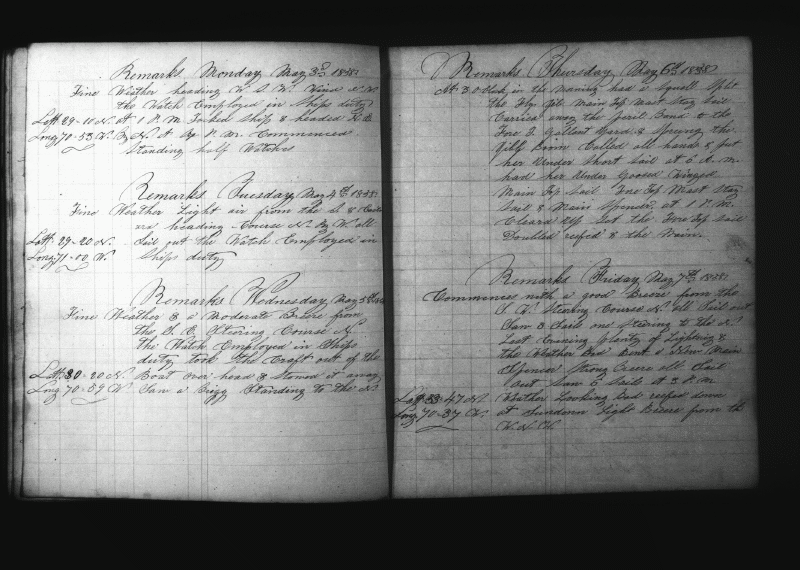 Remarks Monday May 3d 1858
Fine Weather heading W. S. W. Wind
the Watch Employed in Ships duty
Latt. 29-11 N. at 1 P. M. Tacked Ship & headed
Long 70-53 W. By N. At By P. M. Commenced
Standing half Watches
Remarks Tuesday May 4th 1858
Fine Weather Light air from the S &
heading Course N. By W. all
Latt. 29-20 N. Sail out the Watch Employed in
Long 71-00 W. Ships duty
Remarks Wednesday May 5th
Fine Weather & a moderate Breeze from
the S. E. Stering Course N.
The Watch Employed in Ships
duty took the Craft out of the
Latt. 30-20 N. Boat over head & stowed it away
Long 70-59 W. Saw a Brigg Standing to the N
Remarks Thursday May 6th 1858
At 3.0 Clock in the Morning had a Squall Split
the Flying Jib Main Top Mast Stay Sail
Carried away the Band & the
Fore T. Gallant Yard & Sprung the
Jibb Boom Called all hands & put
her Under Short Sail at 6 A. M.
had her Under Goosed Winged
Main Top Sail Fore Top Mast Stay
Sail & Main Spencer at 1 P. M.
Cleard Up Set the Fore Top Sail
Doubled reefed & the Main.
Remarks Friday May 7th 1858
Commences with a good Breeze from the
S. W. Stering Course N. all Sail out
Saw 3 Sails one Stering to the N
Last Evening plenty of Lightning &
the Weather Bad Bent a New Main
Spencer Strong Breeze all Sail
out Saw 6 Sails at 3 P. M.
Latt. 33-47 N. Weather Looking bad reefed down
Long 70-37 W. at Sundown Light Breeze from the
W. N. W.